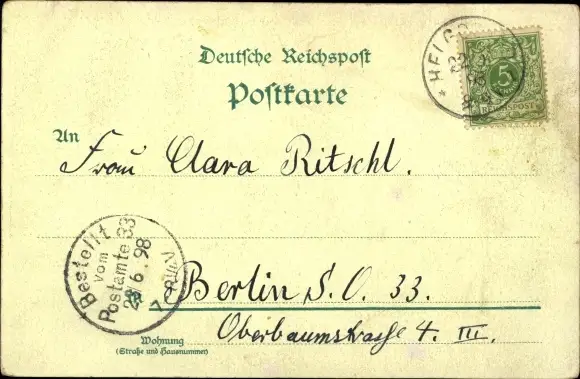 Deutsche Reichspost
Postkarte
HELGO
5
An
Frau Clara Ritschl.
Bestellt
vom
Postamte 33
6.98
Berlin S.O. 33.
Oberbaumstrasse 4. III.
Wohnung
(Straße und Hausnummer)